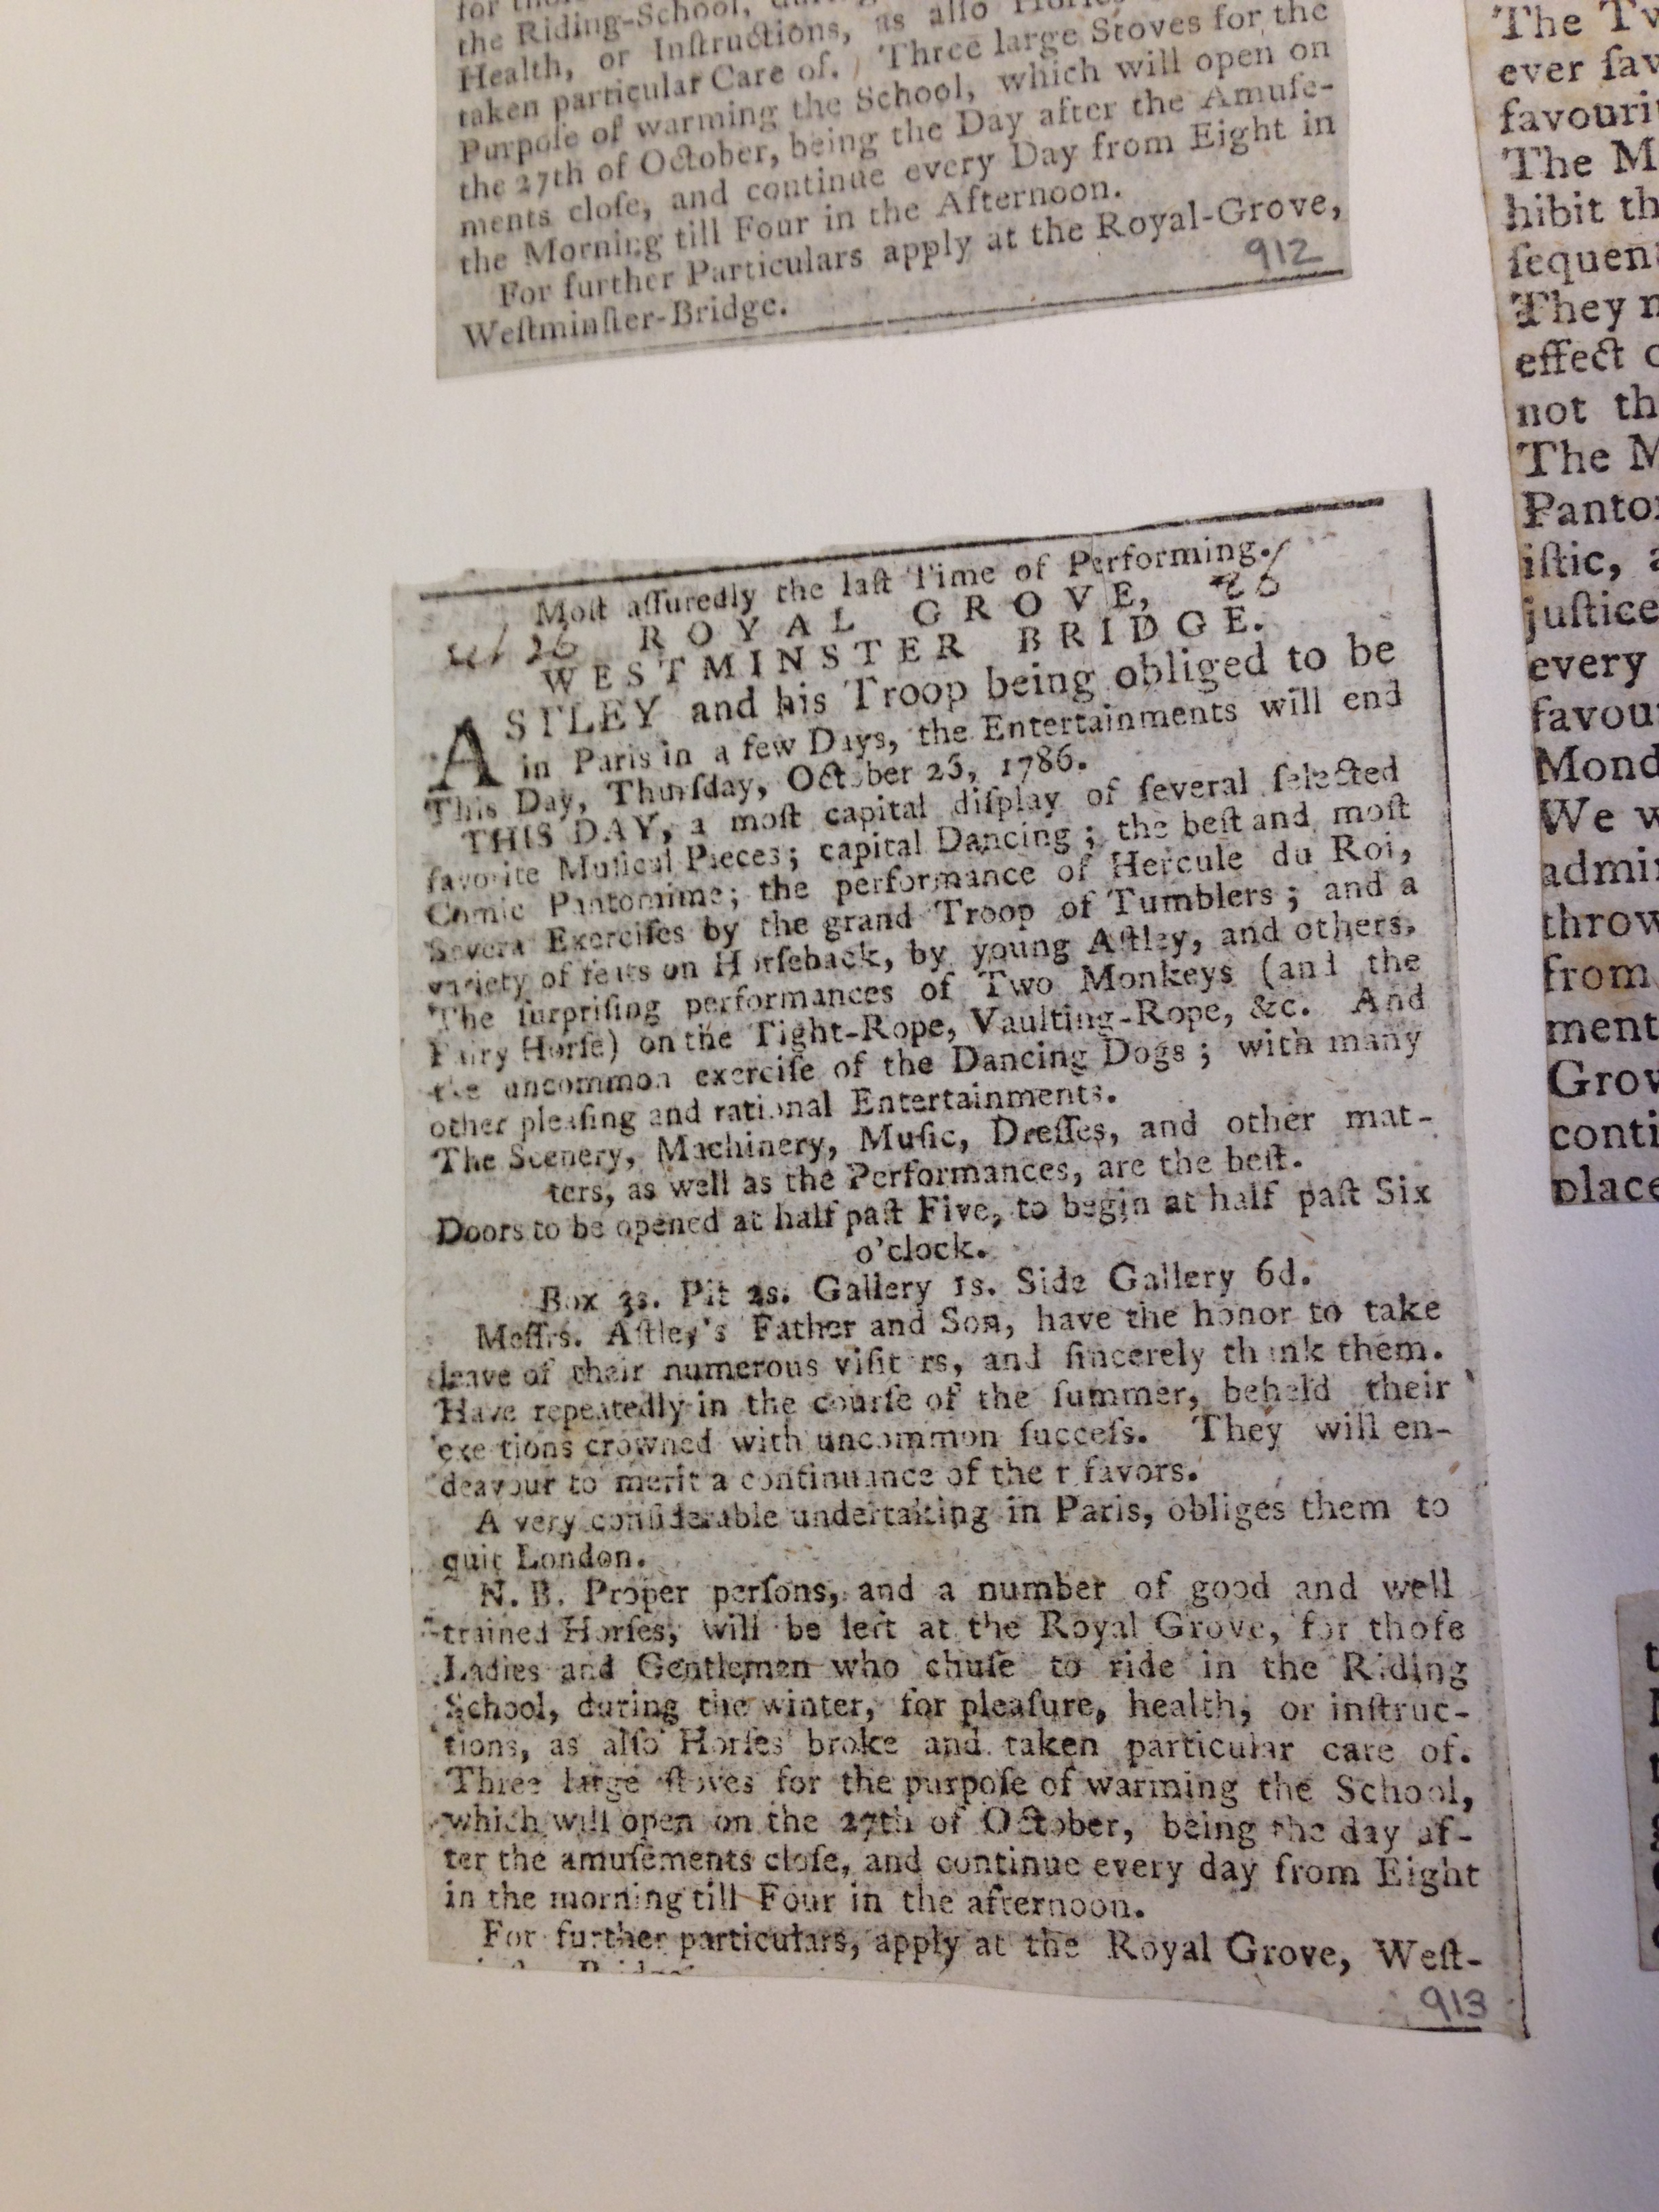 the Riding-School,
Health, or Inſtructions, as alſo
taken particular Care of. Three large Stoves for the
Purpoſe of warming the School, which will open on
the 27th of October, being the Day after the Amuſe-
ments cloſe, and continue every Day from Eight in
the Morning till Four in the Afternoon.
For further Particulars apply at the Royal-Grove,
Weſtminſter-Bridge.
912
Moſt aſſuredly the laſt Time of Performing.
26 ROYAL GROVE, 26
WESTMINSTER BRIDGE.
ASTLEY and his Troop being obliged to be
in Paris in a few Days, the Entertainments will end
This Day, Thurſday, October 26, 1786.
THIS DAY, a moſt capital diſplay of ſeveral ſelected
favorite Muſical Pieces; capital Dancing; the beſt and moſt
Comic Pantomime; the performance of Hercule du Roi,
Severa Exerciſes by the grand Troop of Tumblers; and a
variety of feats on Horſeback, by young Aſtley, and others.
The ſurpriſing performances of Two Monkeys (and the
Fairy Horſe) on the Tight-Rope, Vaulting-Rope, &c. And
the uncommon exerciſe of the Dancing Dogs; with many
other pleaſing and rational Entertainments.
The Scenery, Machinery, Muſic, Dreſſes, and other mat-
ters, as well as the Performances, are the beſt.
Doors to be opened at half paſt Five, to begin at half paſt Six
o'clock.
Box 3s. Pit 2s. Gallery 1s. Side Gallery 6d.
Meſſrs. Aſtley's Father and Son, have the honor to take
leave of their numerous viſitors, and ſincerely thank them.
Have repeatedly in the courſe of the ſummer, beheld their
exertions crowned with uncommon ſucceſs. They will en-
deavour to merit a continuance of their favors.
A very conſiderable undertaking in Paris, obliges them to
quit London.
N. B. Proper perſons, and a number of good and well
trained Horſes, will be left at the Royal Grove, for thoſe
Ladies and Gentlemen who chuſe to ride in the Riding
School, during the winter, for pleaſure, health, or inſtruc-
tions, as alſo Horſes broke and taken particular care of.
Three large ſtoves for the purpoſe of warming the School,
which will open on the 27th of October, being the day af-
ter the amuſements cloſe, and continue every day from Eight
in the morning till Four in the afternoon.
For further particulars, apply at the Royal Grove, Weſt-
913
The
ever
The
hibit
They
effect
not
The
iſtic,
juſtice
every
We
from